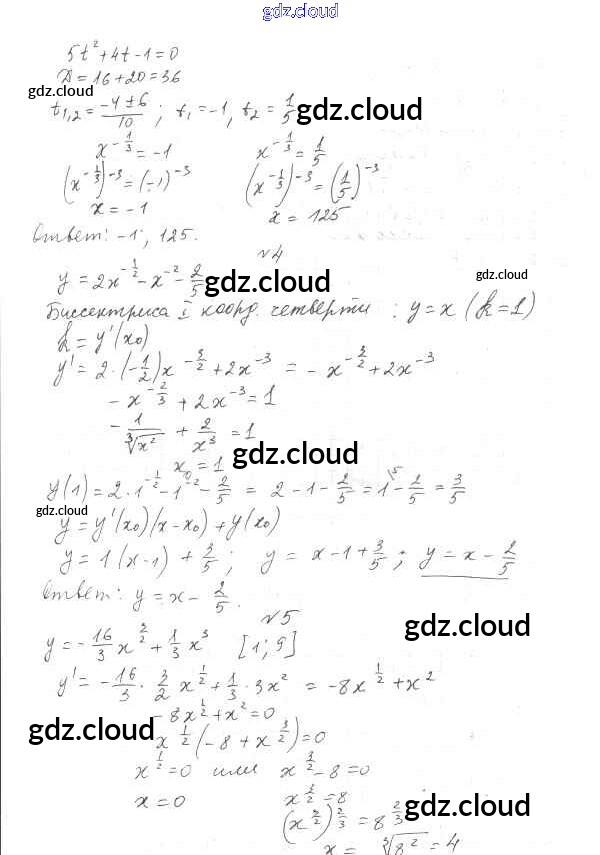 gdz.cloud
5t² + 4t - 1 = 0
D = 16 + 20 = 36
gdz.cloud
t₁,₂ = (-4 ± 6)/10 ; t₁ = -1, t₂ = 1/5 gdz.cloud
x^(-1/3) = -1 x^(-1/3) = 1/5
(x^(-1/3))^(-3) = (-1)^(-3) (x^(-1/3))^(-3) = (1/5)^(-3)
x = -1 x = 125
Ответ: -1; 125.
№4
y = 2x^(-1/2) - x^(-2) - 2/5 gdz.cloud gdz.cloud
Биссектриса I коорд. четверти : y = x (k = 1)
k = y'(x₀)
y' = 2·(-1/2)x^(-3/2) + 2x^(-3) = -x^(-3/2) + 2x^(-3)
-x^(-2/3) + 2x^(-3) = 1
-1/∛x² + 2/x³ = 1
x₀ = 1 gdz.cloud
y(1) = 2·1^(-1/2) - 1^(-2) - 2/5 = 2 - 1 - 2/5 = 1\5 - 2/5 = 3/5
gdz.cloud
y = y'(x₀)(x - x₀) + y(x₀)
y = 1(x - 1) + 3/5 ; y = x - 1 + 3/5 ; y = x - 2/5
Ответ: y = x - 2/5.
№5
gdz.cloud
y = -16/3 x^(3/2) + 1/3 x³ [1; 9]
y' = -16/3 · 3/2 x^(1/2) + 1/3 · 3x² = -8x^(1/2) + x²
-8x^(1/2) + x² = 0
gdz.cloud
x^(1/2)(-8 + x^(3/2)) = 0
x^(1/2) = 0 или x^(3/2) - 8 = 0
x = 0 x^(3/2) = 8
gdz.cloud
(x^(3/2))^(2/3) = 8^(2/3)
x = ∛8² = 4